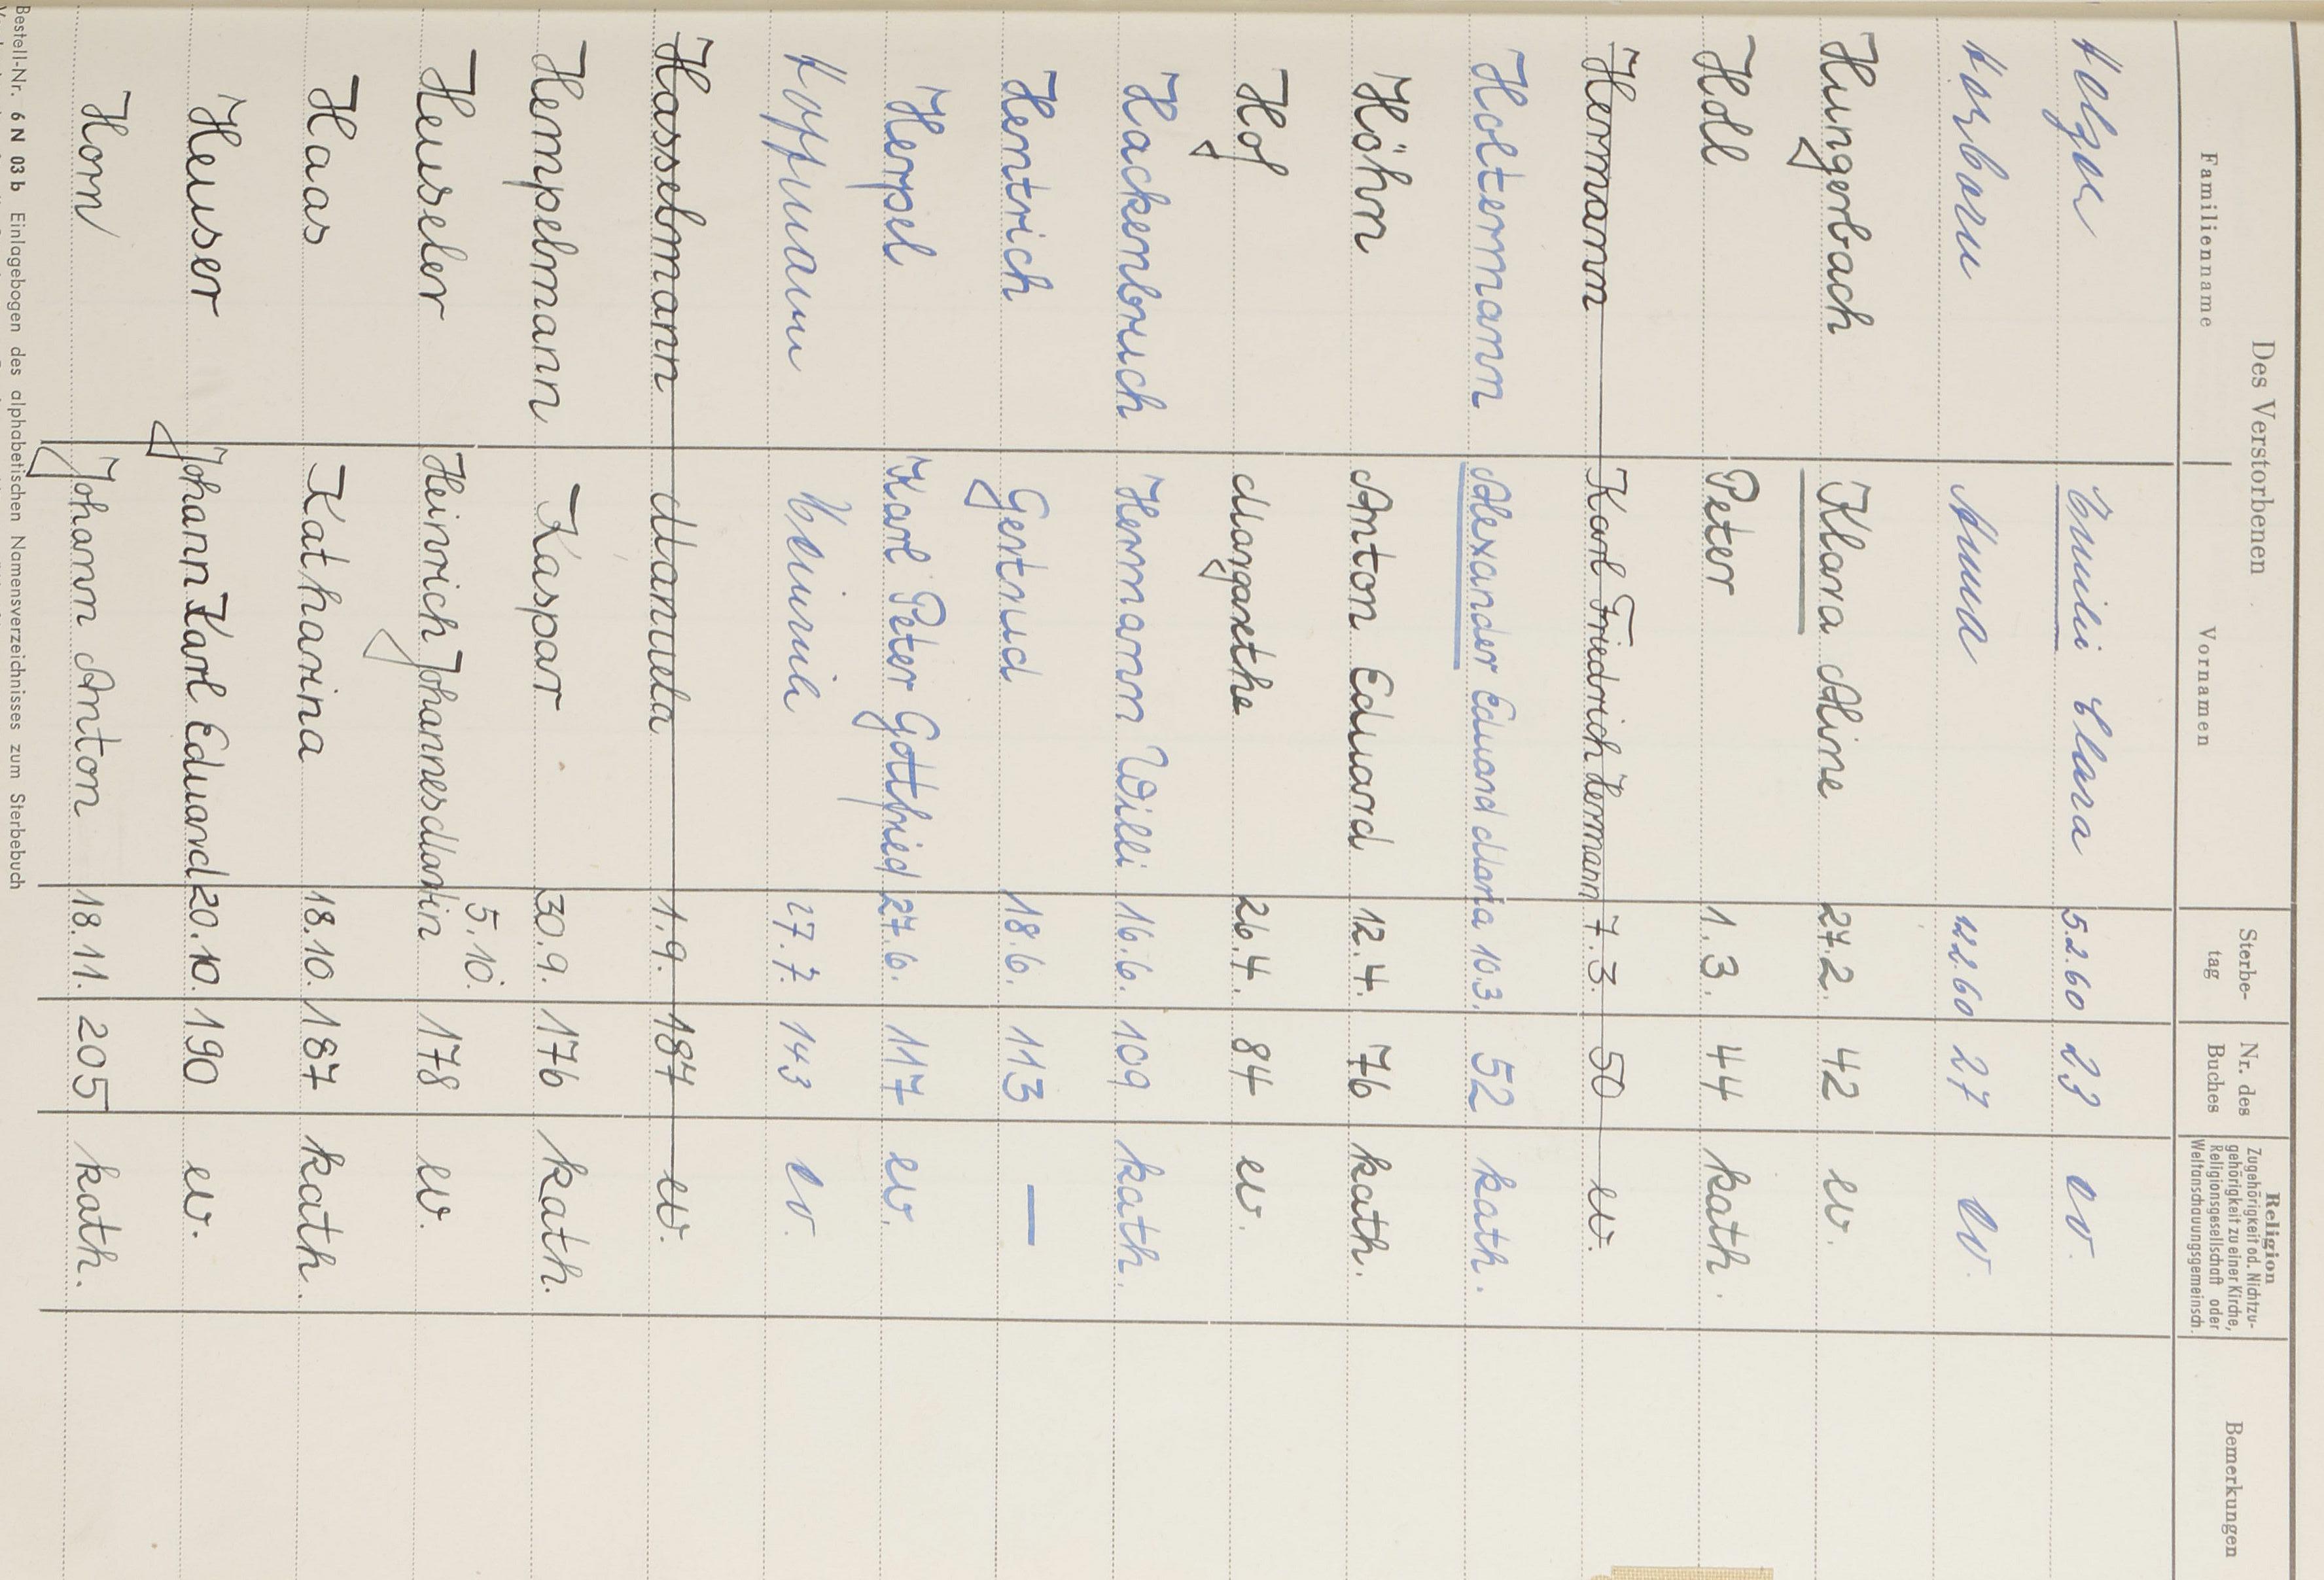 Des Verstorbenen
Familienname Vornamen Sterbe-tag Nr. des Buches Religion Zugehörigkeit od. Nichtzu-gehörigkeit zu einer Kirche, Religionsgesellschaft oder Weltanschauungsgemeinsch. Bemerkungen
Emilie Clara 5.2.60 23 ev.
Anna 12.2.60 27 ev.
Hungerbach Klara Aline 27.2. 42 ev.
Holl Peter 1.3. 44 kath.
Hermann Karl Friedrich Hermann 7.3. 50 ev.
Holtermann Alexander Eduard Maria 10.3. 52 kath.
Höhn Anton Eduard 12.4. 76 kath.
Hof Margarethe 26.4. 84 ev.
Hackenbruch Hermann Willi 16.6. 109 kath.
Hentrich Gertrud 18.6. 113 —
Herpel Karl Peter Gottfried 27.6. 117 ev.
Hoffmann 27.7. 143 ev.
Hasselmann Manuela 1.9. 187 ev.
Hempelmann Kaspar 30.9. 176 kath.
Heuseler Heinrich Johannes Martin 5.10. 178 ev.
Haas Katharina 18.10. 187 kath.
Heuser Johann Karl Eduard 20.10. 190 ev.
Horn Johann Anton 18.11. 205 kath.
Bestell-Nr. 6 N 03 b Einlagebogen des alphabetischen Namensverzeichnisses zum Sterbebuch